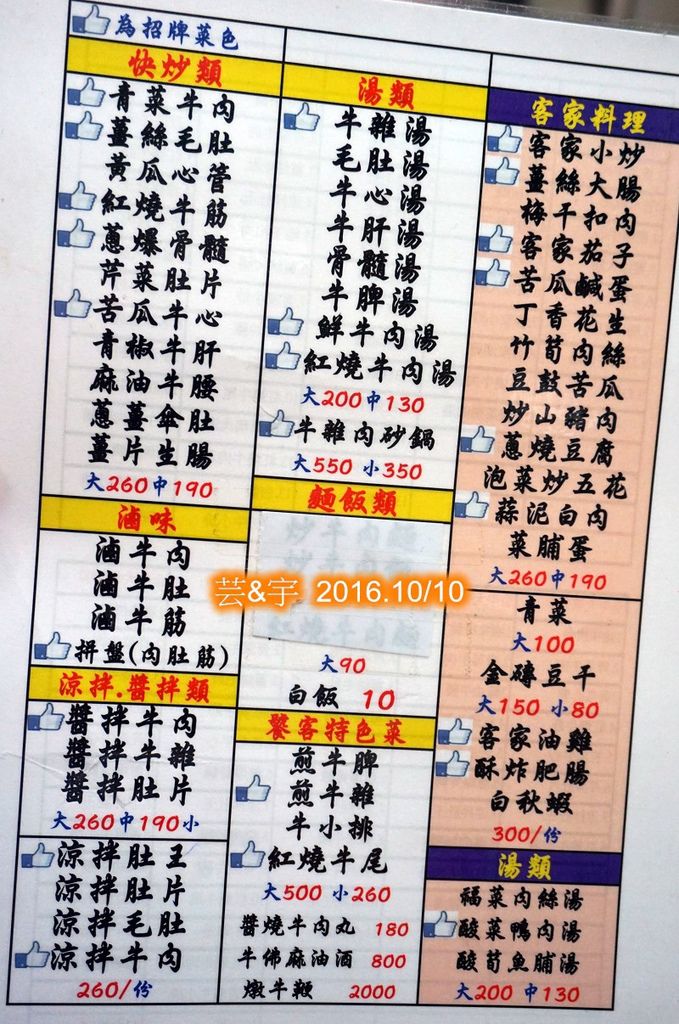 為招牌菜色
快炒類
青菜牛肉
薑絲毛肚
黃瓜心管
紅燒牛筋
蔥爆骨髓
芹菜肚片
苦瓜牛心
青椒牛肝
麻油牛腰
蔥薑傘肚
薑片生腸
大260中190
滷味
滷牛肉
滷牛肚
滷牛筋
拼盤(肉肚筋)
涼拌.醬拌類
醬拌牛肉
醬拌牛雜
醬拌肚片
大260中190小
涼拌肚王
涼拌肚片
涼拌毛肚
涼拌牛肉
260/份
湯類
牛雜湯
毛肚湯
牛心湯
牛肝湯
骨髓湯
牛脾湯
鮮牛肉湯
紅燒牛肉湯
大200中130
牛雜肉砂鍋
大550 小350
麵飯類
芸&宇 2016.10/10
大90
白飯 10
饕客特色菜
煎牛脾
煎牛雜
牛小排
紅燒牛尾
大500 小260
醬燒牛肉丸 180
牛佛麻油酒 800
燉牛鞭 2000
客家料理
客家小炒
薑絲大腸
梅干扣肉
客家茄子
苦瓜鹹蛋
丁香花生
竹荀肉絲
豆鼓苦瓜
炒山豬肉
蔥燒豆腐
泡菜炒五花
蒜泥白肉
菜脯蛋
大260中190
青菜
大100
金磚豆干
大150 小80
客家油雞
酥炸肥腸
白秋蝦
300/份
湯類
福菜肉絲湯
酸菜鴨肉湯
酸荀魚脯湯
大200 中130